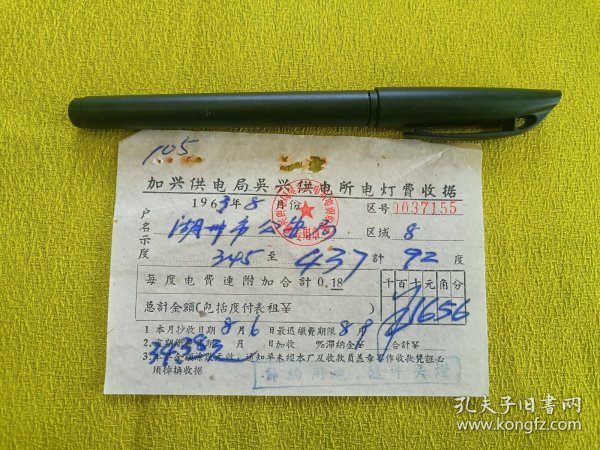 105
加兴供电局吴兴供电所电灯费收据
1963年8月份 区号 0037155
户名 湖州市公安局 区域 8
示度 345 至 437 計 92 度
每度电费連附加合計0.18 千百十元角分
总計金額(包括度付表租¥ ) ¥1656
1 本月抄收日期 8月6日最迟缴費期限 8月
日加收 %滞納金¥ 合計¥
34383
通知单未經本厂及收款員盖章不作收款凭証必
須掉换收据
孔夫子旧書网
www.kongfz.com